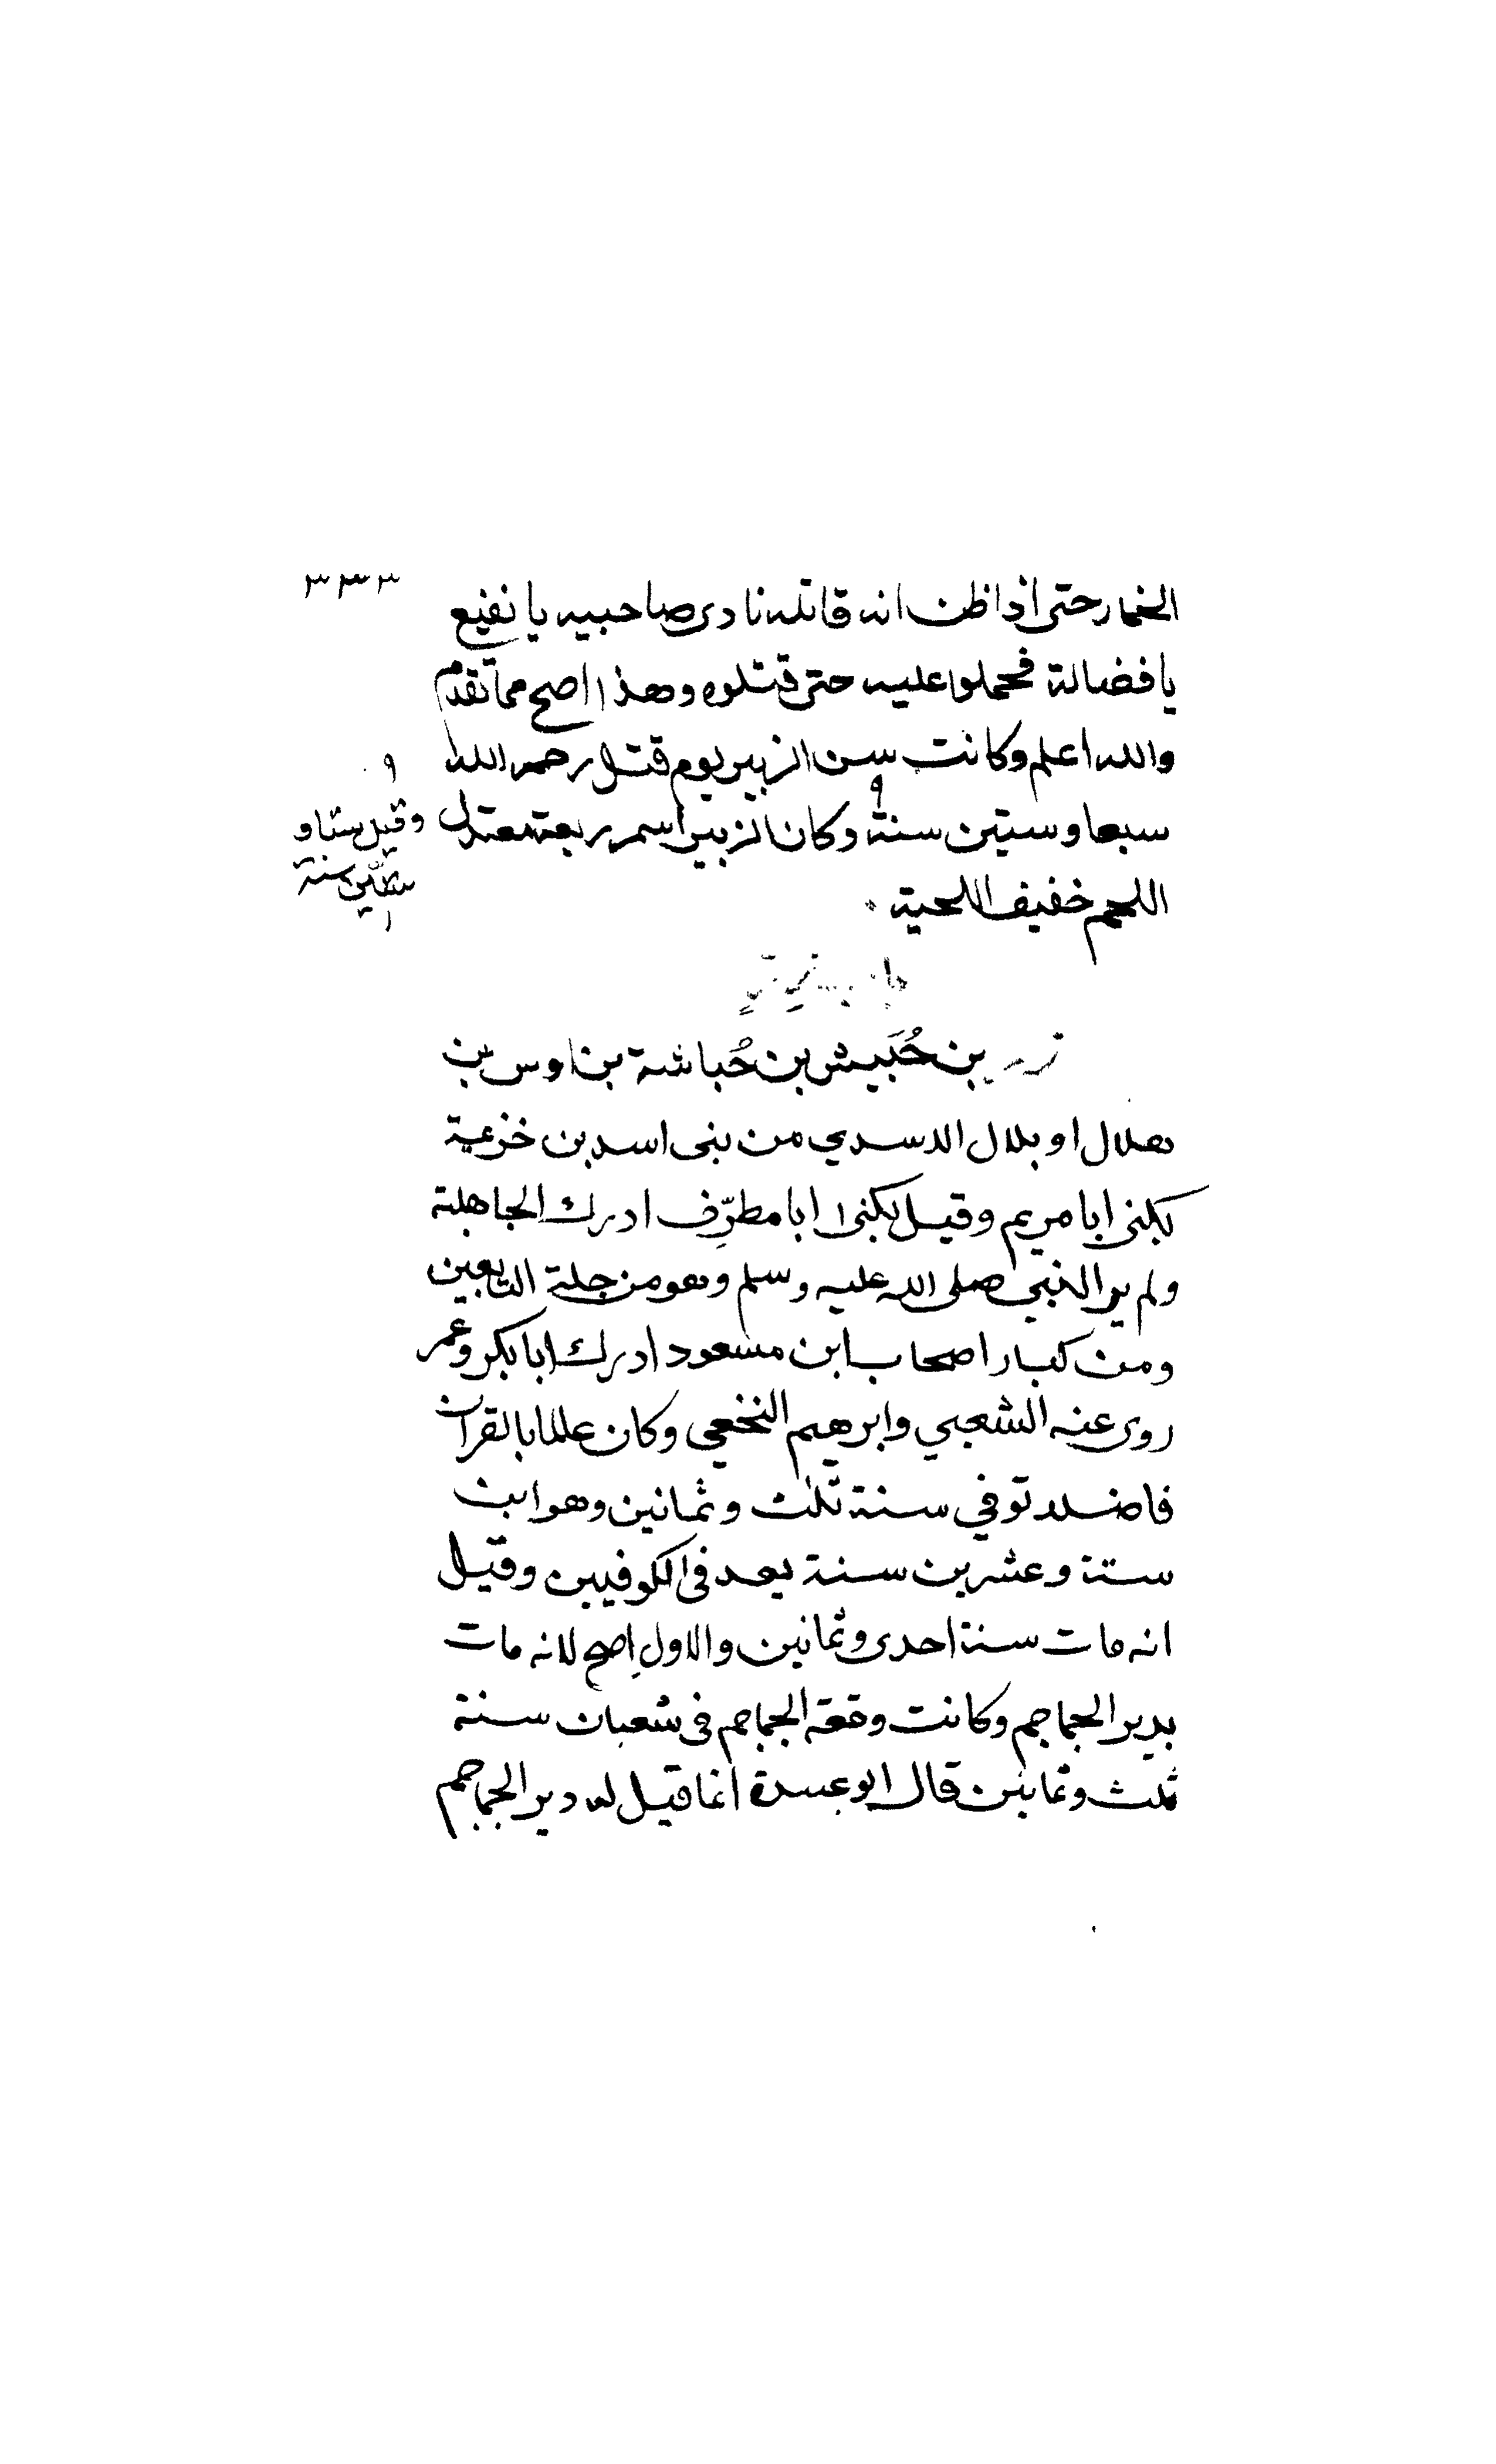 ٣٣٣
الخمار حتى اذا ظن انه قاتله نادى صاحبيه يا نفيع
يا فضالة فحملوا عليه حتى قتلوه وهذا اصح مما تقدم
والله اعلم وكانت سن الزبير يوم قتل رحمه الله
سبعا وستين سنة وكان الزبير اسمر ربعة معتدل
وقيل ستا و
ستين سنة
اللحم خفيف اللحية
زر بن حُبَيش بن حُباشة بن اوس بن
هلال او بلال الاسدي من بنى اسد بن خزيمة
يكنى ابا مريم وقيل يكنى ابا مطرّف ادرك الجاهلية
ولم ير النبي صلى الله عليه وسلم وهو من جلة التابعين
ومن كبار اصحاب ابن مسعود ادرك ابا بكر وعمر
روى عنه الشعبي وابرهيم النخعي وكان عالما بالقرآن
فاضلا توفي سنة ثلث وثمانين وهو ابن
ستة وعشرين سنة يعد فى الكوفيين وقيل
انه مات سنة احدى وثمانين والاول اصح لانه مات
بدير الجماجم وكانت وقعة الجماجم فى شعبان سنة
ثلث وثمانين قال ابو عبيدة انما قيل له دير الجماجم